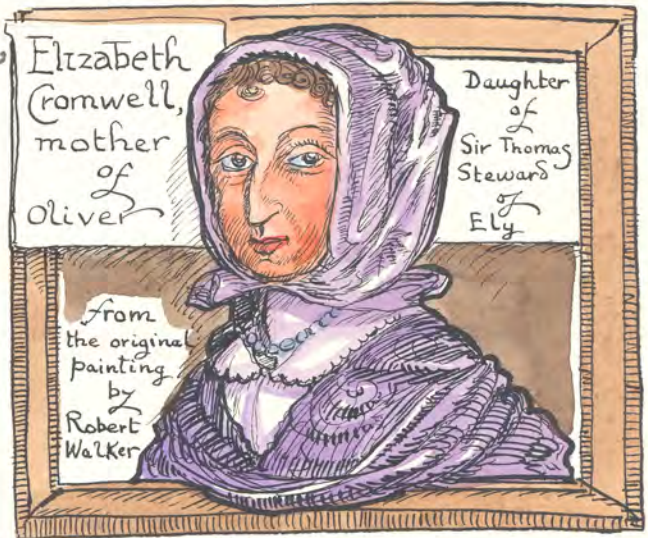 Elizabeth
Cromwell,
mother
of
Oliver
Daughter
of
Sir Thomas
Steward
of
Ely
from
the original
painting
by
Robert
Walker